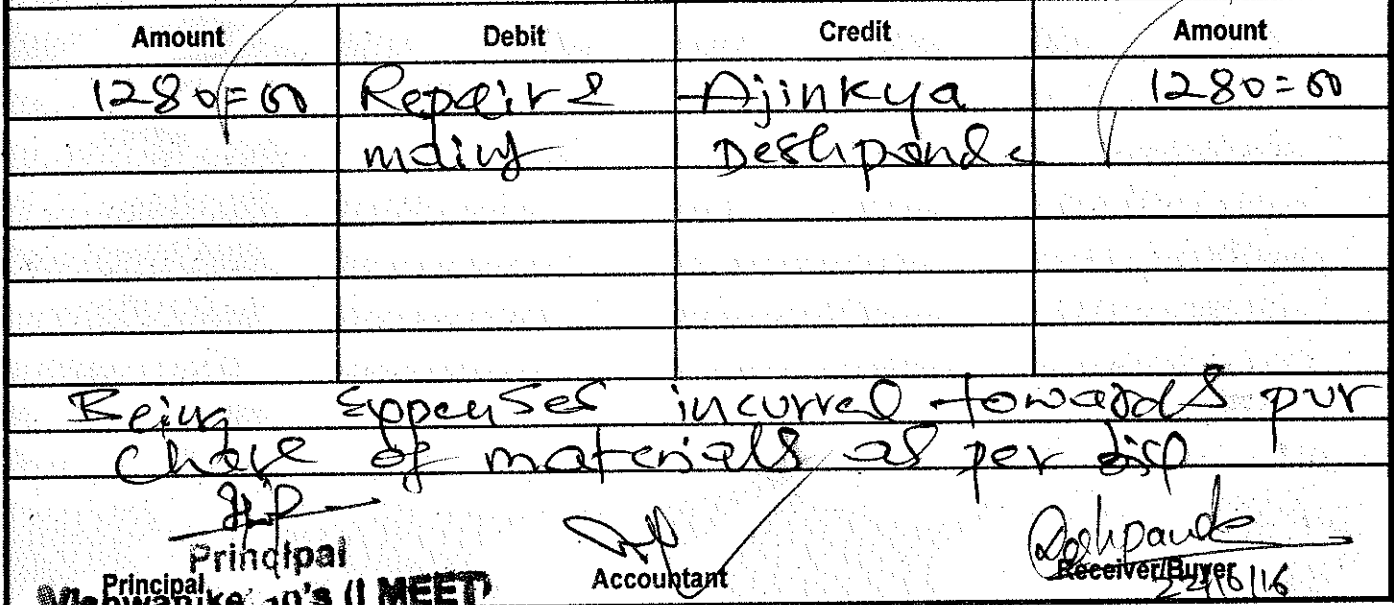 Amount Debit Credit Amount
1280=00 Repair & Ajinkya 1280=00
Deshpande
Being Expenses incurred towards pur
chase of materials as per
Principal
Principal Accountant Deshpande Receiver/Buyer
(I MEET)